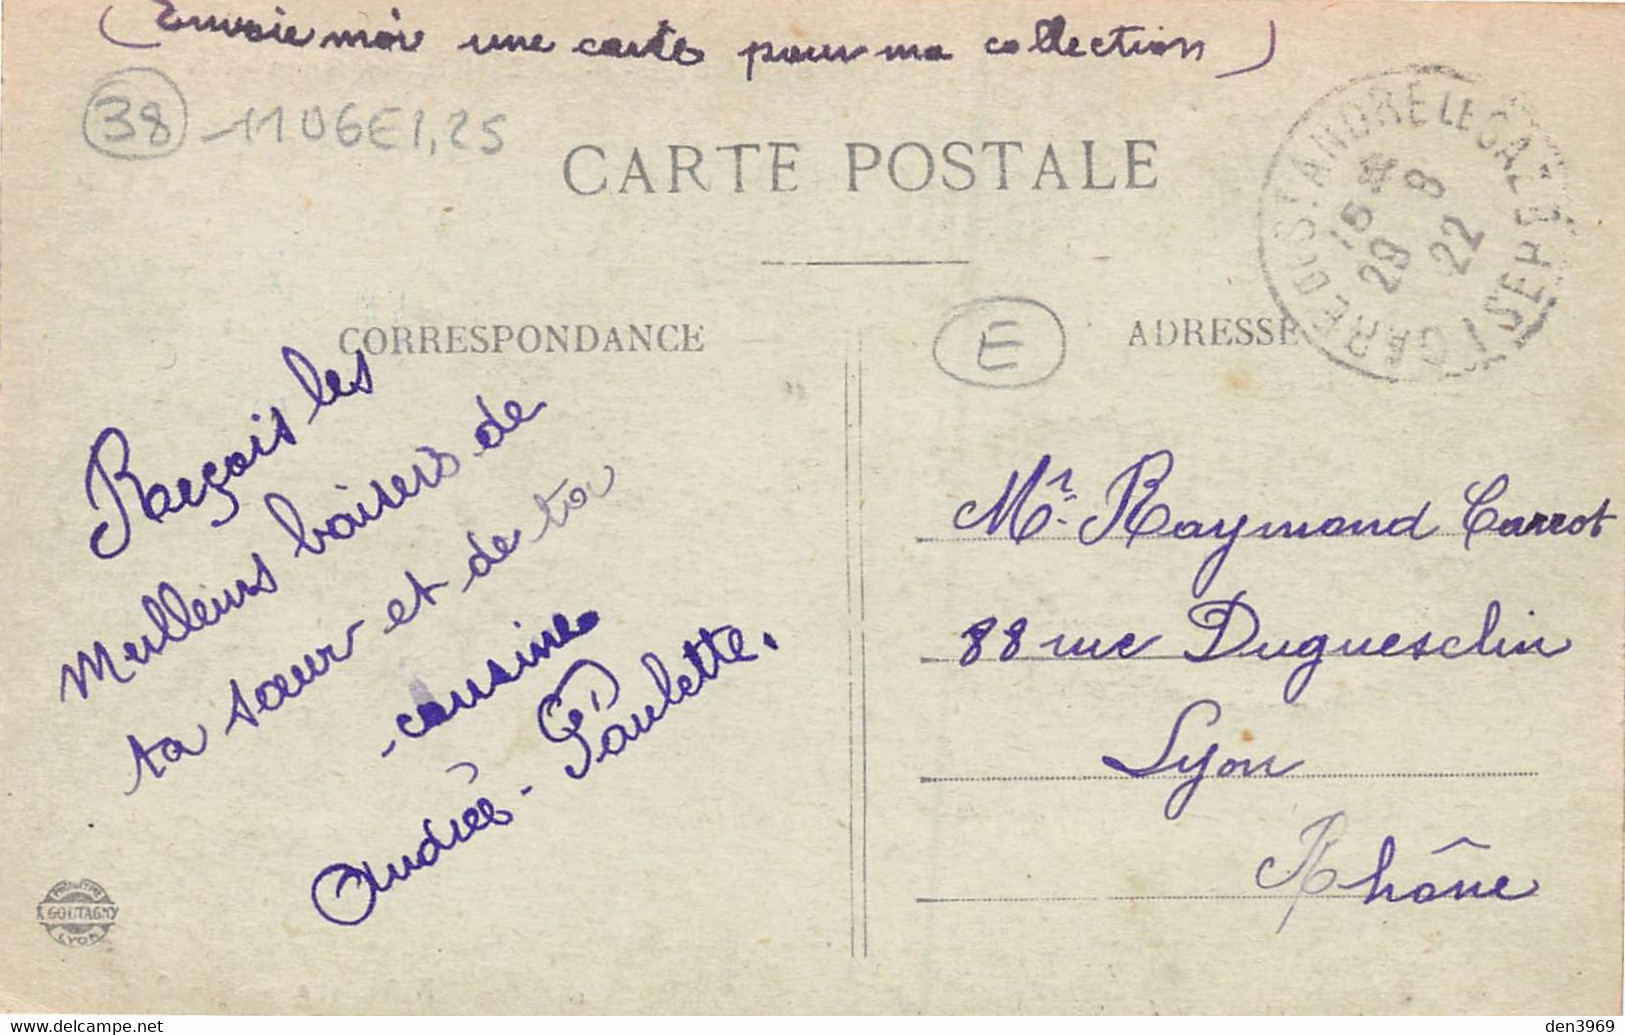 (Envoie moi une carte pour ma collection)
38
CARTE POSTALE
GARE DE ST ANDRE LE GAZ
ISERE
15
29 8
22
CORRESPONDANCE
E
ADRESSE
Reçois les
meilleurs baisers de
ta sœur et de ta
cousine
Andrée - Paulette.
Mr. Raymond Carrot
88 rue Duguesclin
Lyon
Rhône
PHOTOTYPIE
GOUTAGNY
LYON
den3969